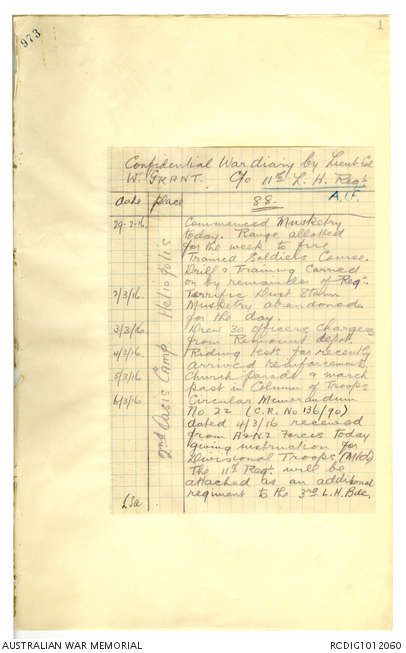 973
1
Confidential War diary by Lieut Col
W. GRANT. C/o 11th L. H. Regt
A.I.F.
date place
88.
2nd Oasis Camp Heliopolis
29-2-16. Commenced Musketry
today. Range allotted
for the week to fire
Trained Soldiers Course.
Drill & Training carried
on by remainder of Regt.
2/3/16. Terrific Dust Storm
Musketry abandoned
for the day.
3/3/16. Drew 30 officers Chargers
from Remount depot.
4/3/16. Riding tests for recently
arrived reinforcements
5/3/16. Church Parade & march
past in Column of Troops
6/3/16. Circular Memorandum
No 22 (C.R. No 136/90)
dated 4/3/16 received
from A&NZ Forces today
giving instruction for
Divisional Troops (Mtd)
The 11th Regt. will be
attached as an additional
regiment to the 3rd L.H. Bde,
AUSTRALIAN WAR MEMORIAL
RCDIG1012060